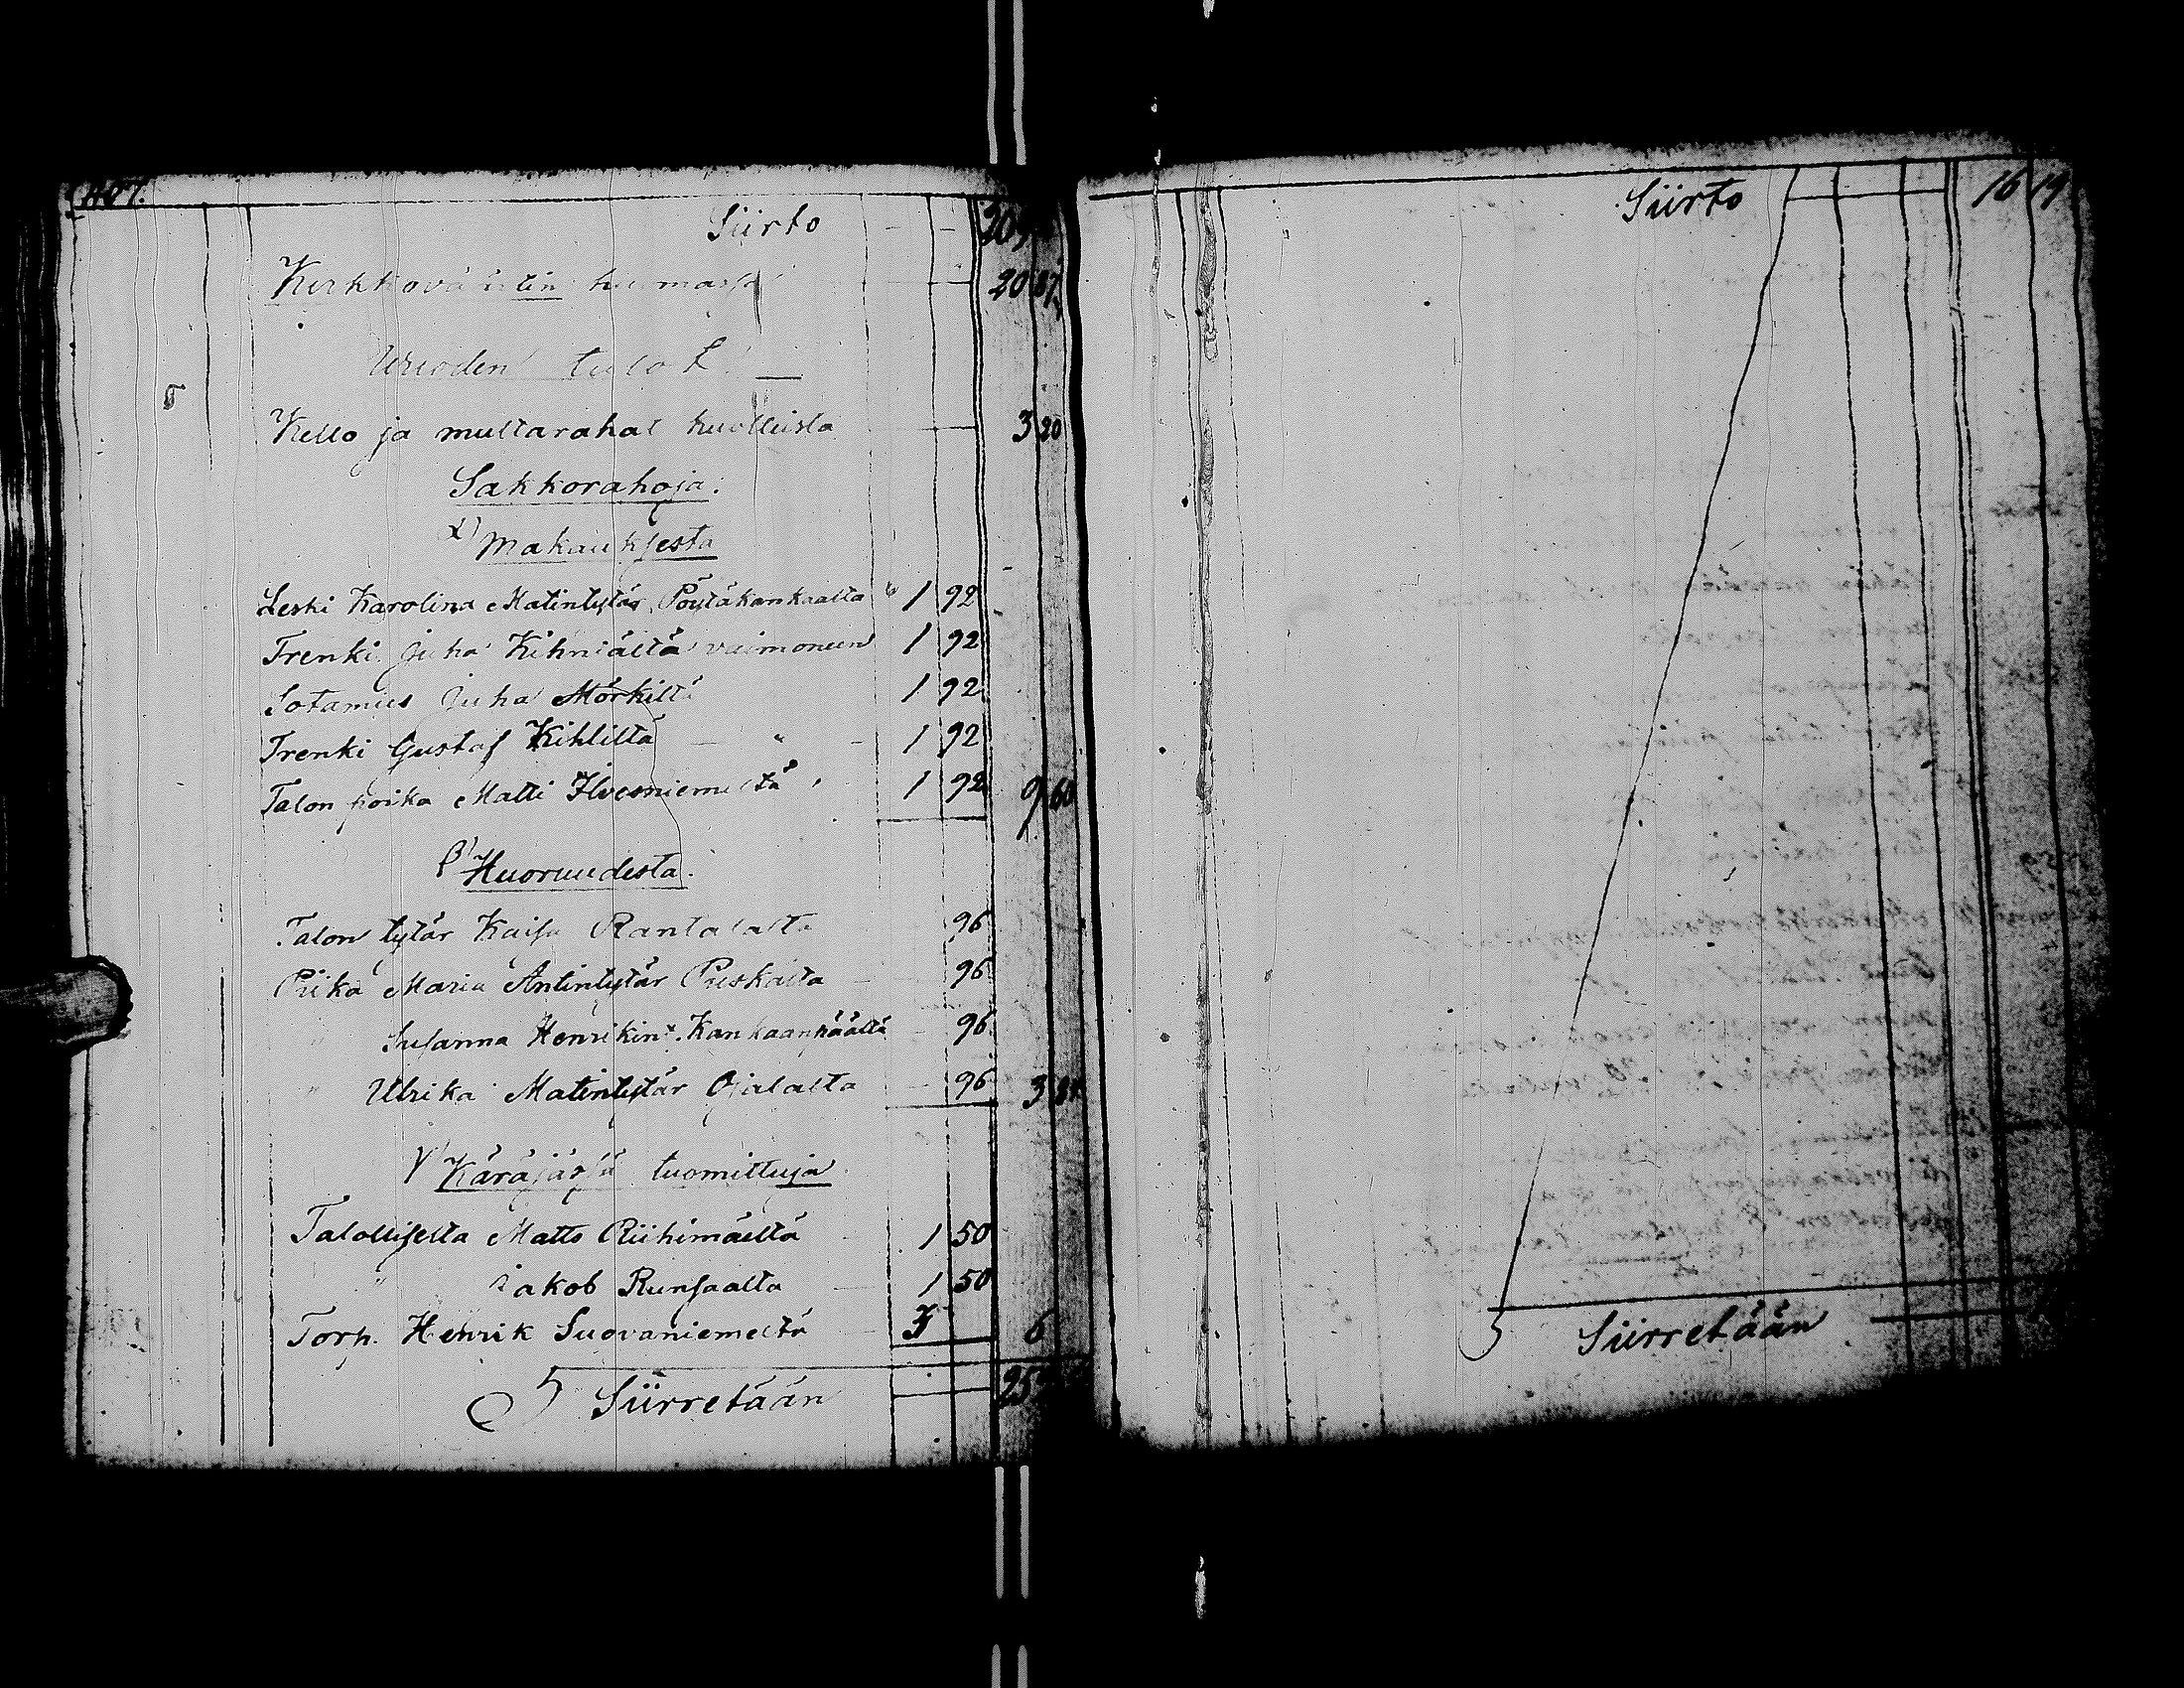 Siirto
Kirkkoväärtin huomassa 20 87
Wuoden tulot
Kello ja multarahat kuolleista 3 20
Sakkorahoja:
α) Makauksesta
Leski Karolina Matintytär Pöytäkankaalta " 1 92
Trenki Juha Kihniältä vaimoneen 1 92
Sotamies Juha Mörkiltä 1 92
Trenki Gustaf Kihliltä " 1 92
Talon poika Matti Ilvesniemeltä 1 92 9 60
β) Huoruudesta.
Talon tytär Kaisa Rantalalta 96
Piika Maria Antintytär Puskalta 96
" Susanna Henrikint. Kankaanpäältä 96
" Ulrika Matintytär Ojalalta 96 3 84
γ) Käräjässä tuomittuja
Talolliselta Matts Riihimäeltä 1 50
" Jakob Runsaalta 1 50
Torp. Henrik Suovaniemeltä 3 6
Siirretään
Siirto 16 19
Siirretään